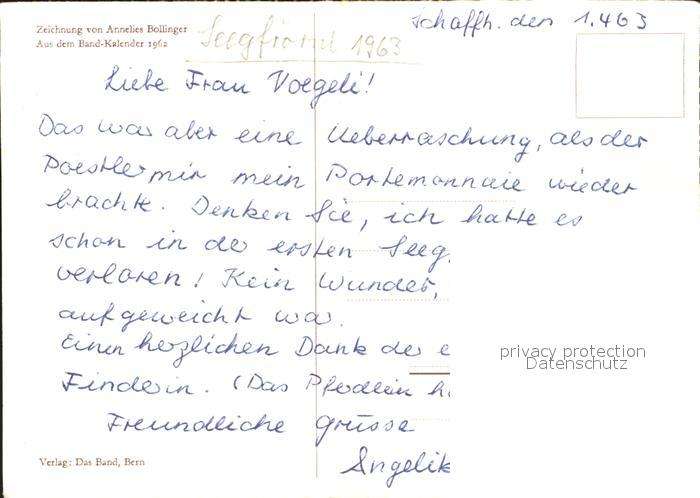 Zeichnung von Annelies Bollinger
Aus dem Band-Kalender 1962
Seegfrörni 1963
Schaffh. den 1.4 63
Liebe Frau Voegeli!
Das war aber eine Ueberraschung, als der
Poestler mir mein Portemonnaie wieder
brachte. Denken Sie, ich hatte es
schon in der ersten Seeg.
verloren! Kein Wunder,
aufgeweicht war.
Einen herzlichen Dank der e
Finderin. (Das Pferdlein h
Freundliche Grüsse
Angelik
Verlag: Das Band, Bern
privacy protection
Datenschutz